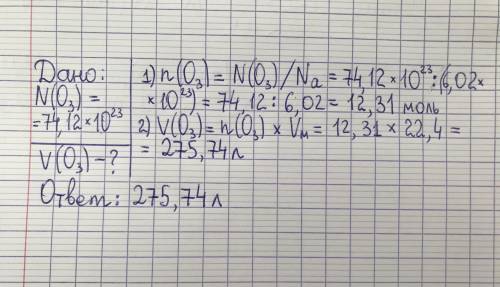 Дано:
N(O₃) =
=74,12×10²³
V(O₃)-?
1) n(O₃) = N(O₃)/Na = 74,12×10²³:(6,02×
×10²³) = 74,12 : 6,02 = 12,31 моль
2) V(O₃) = n(O₃) × Vм = 12,31 × 22,4 =
= 275,74 л
Ответ: 275,74 л